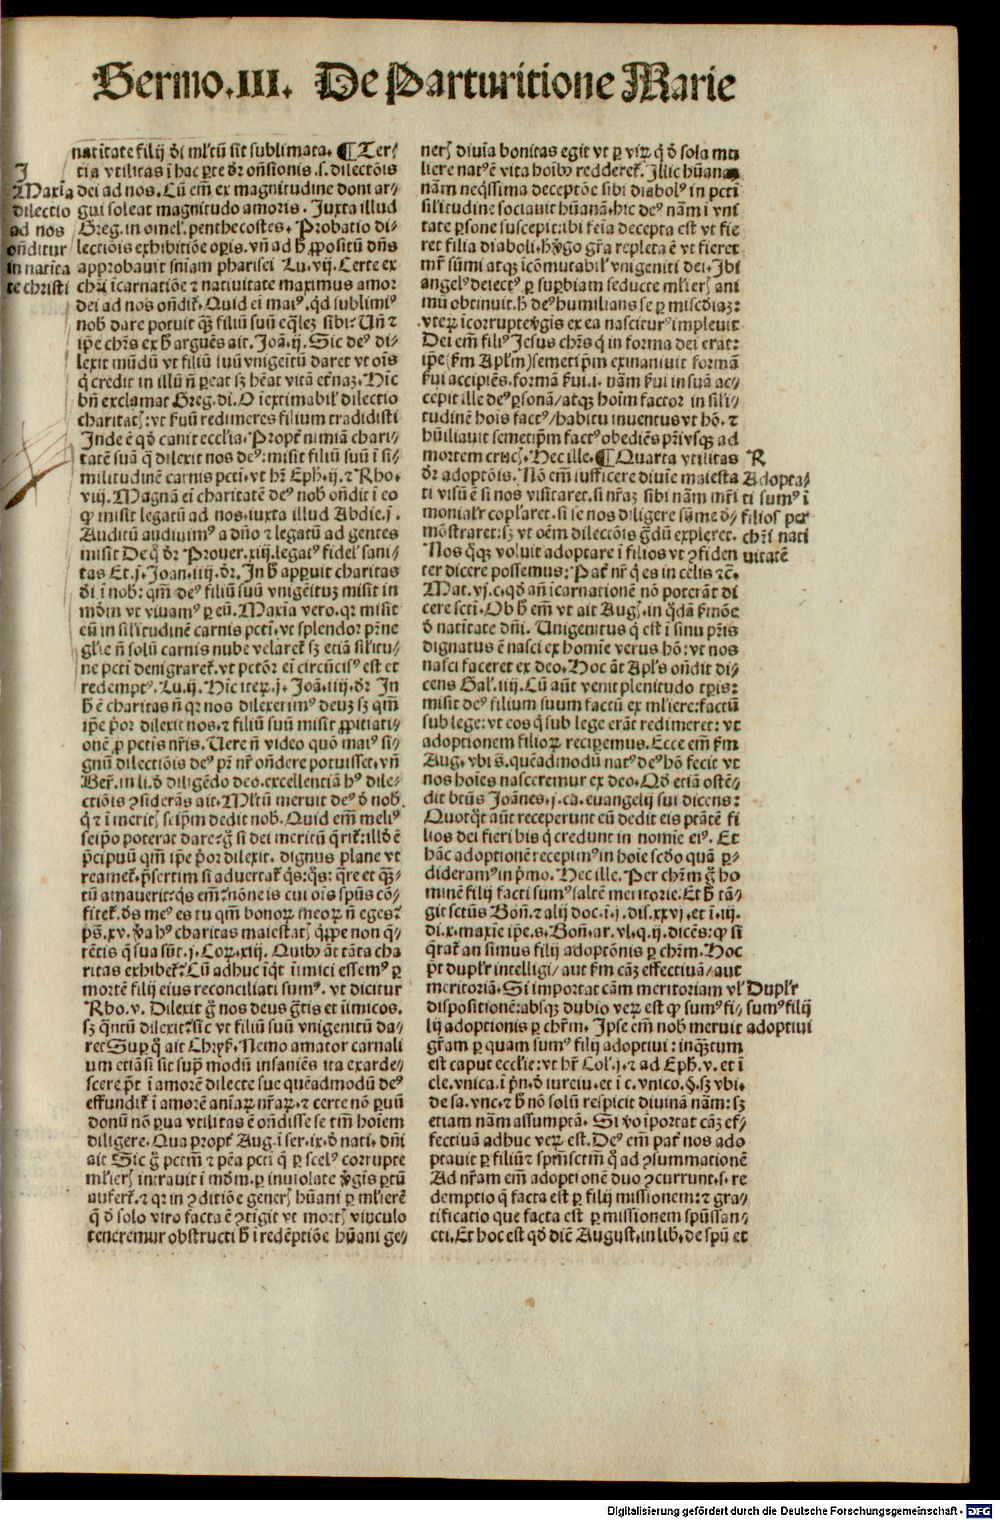 Sermo.III. De Parturitione Marie
natītate filij d̄i ml'tū sit sublimata. ¶ Ter⸗
tia vtilitas ī hac p̱te dr̄ on̄sionis .s. dilectōis
dei ad nos. Cū em̄ ex magnitudine doni ar⸗
gui soleat magnitudo amoris. Juxta illud
Greg. in omel'. penthecostes. Probatio di⸗
lectiōis exhibitiōe op̱is. vn̄ ad h̄ ꝓpositū dn̄s
approbauit sn̄iam pharisei Lu. vij. Certe ex
chr̄i īcarnatiōe ⁊ natiuitate maximus amor
dei ad nos on̄dit᷑. Quid ei maiꝰ, qd sublimiꝰ
nob̄ dare potuit qꝫ̄ filiū suū eq̄lez sibi: Un̄ ⁊
ip̄e chr̄s ex h̄ arguēs ait. Joā. ij. Sic deꝰ di⸗
lexit mūdū vt filiū suū vnigeītū daret vt oīs
q̄ credit in illū n̄ p̱eat sꝫ hēat vitā et̓naꝫ. Hīc
bn̄ exclamat Greg. di. O iextimabil' dilectio
charitatꝭ: vt ẜuū redimeres filium tradidisti
Inde ē qd̄ canit eccl̄ia. Propt̓ nimiā chari⸗
tatē suā q̄ dilexit nos deꝰ: misit filiū suū ī si⸗
militudinē carnis pctī. vt hr̄ Eph. ij. ⁊ Rho.
viij. Magnā ei charitatē deꝰ nob̄ on̄dit ī eo
ꝙ misit legatū ad nos. iuxta illud Abdie. j.
Auditū audiuimꝰ a dn̄o ⁊ legatū ad gentes
misit De q̄ dr̄ Prouer. xiij. legatꝰ fidel' sani⸗
tas Et. j. Joan. iiij. dr̄. In h̄ apparuit charitas
d̄i ī nob̄: qm̄ deꝰ filiū suū vnigeītuꝫ misit in
mūdm vt viuamꝰ p̱ eū. Maxīa vero. qr misit
eū in sil'itudinē carnis pctī. vt splendor pr̄ne
gl'ie n̄ solū carnis nube velaret᷑ sꝫ etiā sil'itu⸗
ne pctī denigraret᷑. vt petōr̄ ei circūcisꝰ est et
redemptꝰ. Lu. ij. Hic iteꝝ. j. Joā. iiij. dr̄ In
h̄ ē charitas n̄ qr nos dilexerimꝰ deuꝫ sꝫ qm̄
ip̄e p̓or dilexit nos. ⁊ filiū suū misit ꝓpitiati⸗
onē ꝓ pctīs nr̄is. Uere n̄ video quō maiꝰ si⸗
gnū dilectiōis deꝰ pr̄ nr̄ on̄dere potuisset. vn̄
Ber̄. in li. d̄ diligēdo deo. excellentiā hꝰ dile⸗
ctiōis ꝯsiderās ait. Ml'tū meruit deꝰ d̄ nob̄.
q̄ ⁊ ī meritꝭ seip̄m dedit nob̄. Quid em̄ meliꝰ
seip̄o poterat dare: g̊ si dei meritū q̄rit᷑: illd̄ ē
p̓cipuū qm̄ ip̄e p̓or dilexit. dignus plane vt
reamet᷑. p̓sertim si aduertat᷑ q̓s: q̓s: q̄re et qꝫ̄⸗
tū amauerit: q̓s em̄: nōne is cui oīs sp̄us cō⸗
fitet᷑. d̄s meꝰ es tu qm̄ bonoꝝ meoꝝ n̄ eges:
ps̄. xv. v̓a hꝰ charitas maiestatꝭ q̄ppe non q̄⸗
rētis q̄ sua sūt. j. Coꝝ. xiij. Quibꝰ āt tāta cha
ritas exhibet᷑: Cū adhuc iq̓t īimici essemꝰ p̱
mortē filij eius reconciliati sumꝰ. vt dicitur
Rho. v. Dilexit g̊ nos deus g̓tis et īimicos.
sꝫ q̄ntū dilexit: sic vt filiū suū vnigenitū da⸗
ret Sup̱ q̄ ait Chrys̄. Nemo amator carnali
um etiā si sit sup̱ modū insaniēs ita exarde⸗
scere pōt ī amorē dilecte sue quēadmodū deꝰ
effundit᷑ ī amorē aniaꝝ nr̄aꝝ. ⁊ certe nō p̱uū
donū nō p̱ua vtilitas ē on̄disse se tm̄ hoīem
diligere. Qua propt̓ Aug. ī ser. ix. d̄ nati. dn̄i
ait Sic g̊ pctm̄ ⁊ pēa pctī q̄ p̱ scelꝰ corrupte
ml'ierꝭ intrauit ī mūdm. p̱ inuiolate v̓gīs p̱tū
auferet᷑. ⁊ qr in ꝯditiōe generꝭ hūani p̱ ml'ierē
q̄ d̄ solo viro facta ē ꝯtigit vt mortꝭ viuculo
teneremur obstructi h̄ ī redēptiōe hūani ge⸗
I
Maxīa
dilectio
ad nos
on̄ditur
in natiui
te christi
nerꝭ diuīa bonitas egit vt p̱ viꝝ q̄ d̄ sola mu
liere natꝰ ē vita hoībꝰ redderet᷑. Illic hūanaꝫ
nām neq̄ssima deceptōe sibi diabolꝰ in pctī
sil'itudine sociauit hūanā. hic deꝰ nām ī vni
tate p̱sone suscepit: ibi feīa decepta est vt fie
ret filia diaboli. h̄ v̓go gr̄a repleta ē vt fieret
mr̄ sūmi atqꝫ īcōmutabil' vnigeniti dei. Ibi
angelꝰ deiectꝰ p̱ sup̱biam seducte ml'ierꝭ ani
mū obtinuit. h̄ deꝰ humilians se p̱ miscd̄iaꝫ:
vteꝝ īcorrupte v̓gīs ex ea nasciturꝰ impleuit
Dei em̄ filiꝰ Jesus chr̄s q̄ in forma dei erat:
ip̄e (ẜm Apl'm) semetip̄m exinaniuit formā
ẜui accipiēs. formā ẜui .i. nām ẜui in suā ac⸗
cepit ille deꝰ p̱sonā / atqꝫ hoīm factor in sil'i⸗
tudinē hoīs factꝰ / habitu inuentus vt hō. ⁊
hūiliauit semetip̄m factꝰ obediēs pr̄i vsqꝫ ad
mortem crucꝭ. Hec ille. ¶ Quarta vtilitas
dr̄ adoptōis. Nō em̄ sufficere diuīe maiesta
ti visū ē si nos visitaret. si nr̄aꝫ sibi nām mr̄i
monial'r copl'aret. si se nos diligere sūme d̄⸗
mōstraret: sꝫ vt oēm dilectōis g̊dū expleret.
Nos qꝫqꝫ voluit adoptare ī filios vt ꝯfiden
ter dicere possemus: Pat̓ nr̄ q̄ es in celis ⁊c̄.
Mat. vj. c. qd̄ an̄ īcarnationē nō poterāt di
cere sctī. Ob h̄ em̄ vt ait Augꝰ. in q̄dā ẜmōe
d̄ natītate dn̄i. Unigenitus q̄ est ī sinu pr̄is
dignatus ē nasci ex homīe verus hō: vt nos
nasci faceret ex deo. Hoc āt Apl's on̄dit di⸗
cens Gal'. iiij. Cū aūt venit plenitudo tp̄is:
misit deꝰ filium suum factū ex ml'iere: factū
sub lege: vt eos q̄ sub lege erāt redimeret: vt
adoptionem filioꝝ recip̱emus. Ecce em̄ ẜm
Aug. vbi s̄. quēadmodū natꝰ deꝰ hōi fecit vt
nos hoīes nasceremur ex deo. Qd̄ etiā ostē⸗
dit btūs Joānes. j. ca. euangelij sui dicens:
Quotq̓t aūt receperunt eū dedit eis ptātē fi
lios dei fieri his q̄ credunt in nomīe eiꝰ. Et
hāc adoptionē recepimꝰ in hoīe scd̄o quā p̱⸗
dideramꝰ in p̓mo. Hec ille. Per chr̄m g̊ ho
minē filij facti sumꝰ saltē meritorie. Et h̄ tā⸗
git sctūs Bon̄. ⁊ alij doc. ī. j. dis. xxvj. et ī. iij.
di. x. maxīe ip̄e. s. Bon̄. ar. vl. q. ij. dicēs: ꝙ si
q̄rat᷑ an simus filij adoptōnis p̱ chr̄m. Hoc
pōt dupl'r intelligi / aut ẜm cāꝫ effectiuā / aut
meritoriā. Si importat cām meritoriam vl'
dispositionē: absqꝫ dubio veꝝ est ꝙ sumꝰ fi⸗
lij adoptionis p̱ chr̄m. Ip̄se em̄ nob̄ meruit
gr̄am p̱ quam sumꝰ filij adoptiui: inqꝫ̄tum
est caput eccl'ie: vt hr̄ Col'. j. ⁊ ad Eph. v. et ī
cle. vnica. ī p̓n. d̄ iureiu. et ī c. vnico. §. sꝫ vbi.
de sa. vnc. ⁊ h̄ nō solū respicit diuinā nām: sꝫ
etiam nām assumptā. Si v̓o īportat cāꝫ ef⸗
fectiuā adhuc veꝝ est. Deꝰ em̄ pat̓ nos ado
ptauit p̱ filiū ⁊ spm̄sctm̄ q̄ ad ꝯsummationē
Ad nr̄am em̄ adoptionē duo ꝯcurrunt. s. re
demptio q̄ facta est p̱ filij missionem: ⁊ gra⸗
tificatio que facta est p̱ missionem sp̄ussan⸗
cti. Et hoc est qd̄ dic̄ August. in lib. de sp̄u et
R
Adopta⸗
ti sumꝰ ī
filios per
chr̄i nati
uitatē
Dupl'r
sumꝰ filij
adoptiui
Digitalisierung gefördert durch die Deutsche Forschungsgemeinschaft - DFG